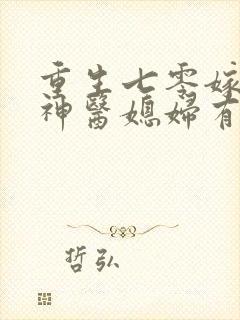 重生七零嫁
神醫媳婦有
哲弘